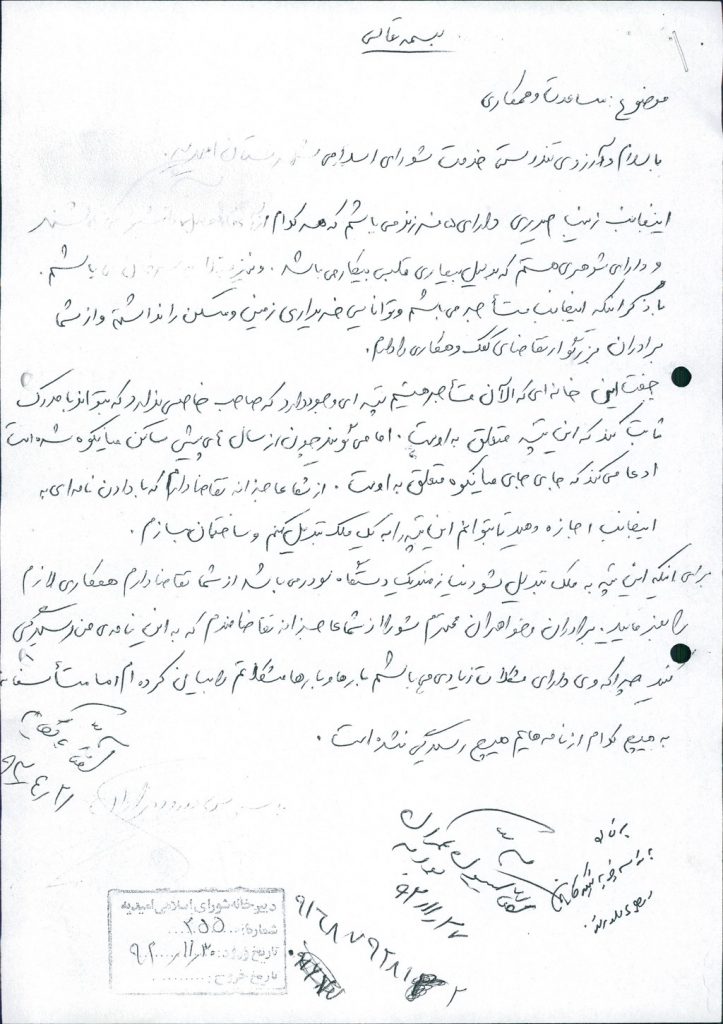 بسمه تعالی
موضوع: مساعدت و همکاری
با سلام و آرزوی تندرستی خدمت شورای اسلامی شهرستان امیدیه.
اینجانب زینب حیدری دارای ۵ فرزند می باشم که هر کدام
و دارای شوهری هستم که بدلیل بیماری قلبی بیکار می باشد. و نیز می باشم.
با ذکر اینکه اینجانب مستأجر می باشم و توانایی خریداری زمین و مسکن را نداشته و از شما
برادران بزرگوار تقاضای کمک و همکاری را دارم.
جفت این خانه ای که الآن مستأجر هستیم تپه ای وجود دارد که صاحب خاصی ندارد که بتواند با مدرک
ثابت کند که این تپه متعلق به اوست. اما می گویند چون از سال های پیش ساکن میانکوه شده است
ادعا می کند که جای جای میانکوه متعلق به اوست. از شما عاجزانه تقاضا دارم که با دادن نامه ای به
اینجانب اجازه دهید تا بتوانم این تپه را به یک ملک تبدیل کنم و ساختمان بسازم.
برای اینکه این تپه به ملک تبدیل شود نیازمند یک دستگاه لودر می باشد از شما تقاضا دارم همکاری لازم
را بفرمایید. برادران و خواهران محترم شورا از شما عاجزانه تقاضامندم که به این نامه ی من رسیدگی
کنید چرا که دارای مشکلات زیادی می باشم بارها و بارها مشکلاتم را بیان کرده ام اما متأسفانه
به هیچ کدام از نامه هایم هیچ رسیدگی نشده است.
کمیسیون عمران
۹۲/۱۱/۲۷
دبیرخانه شورای اسلامی امیدیه
شماره: ۲۵۵
تاریخ ورود: ۹۲/۱۱/۳۰
تاریخ خروج: